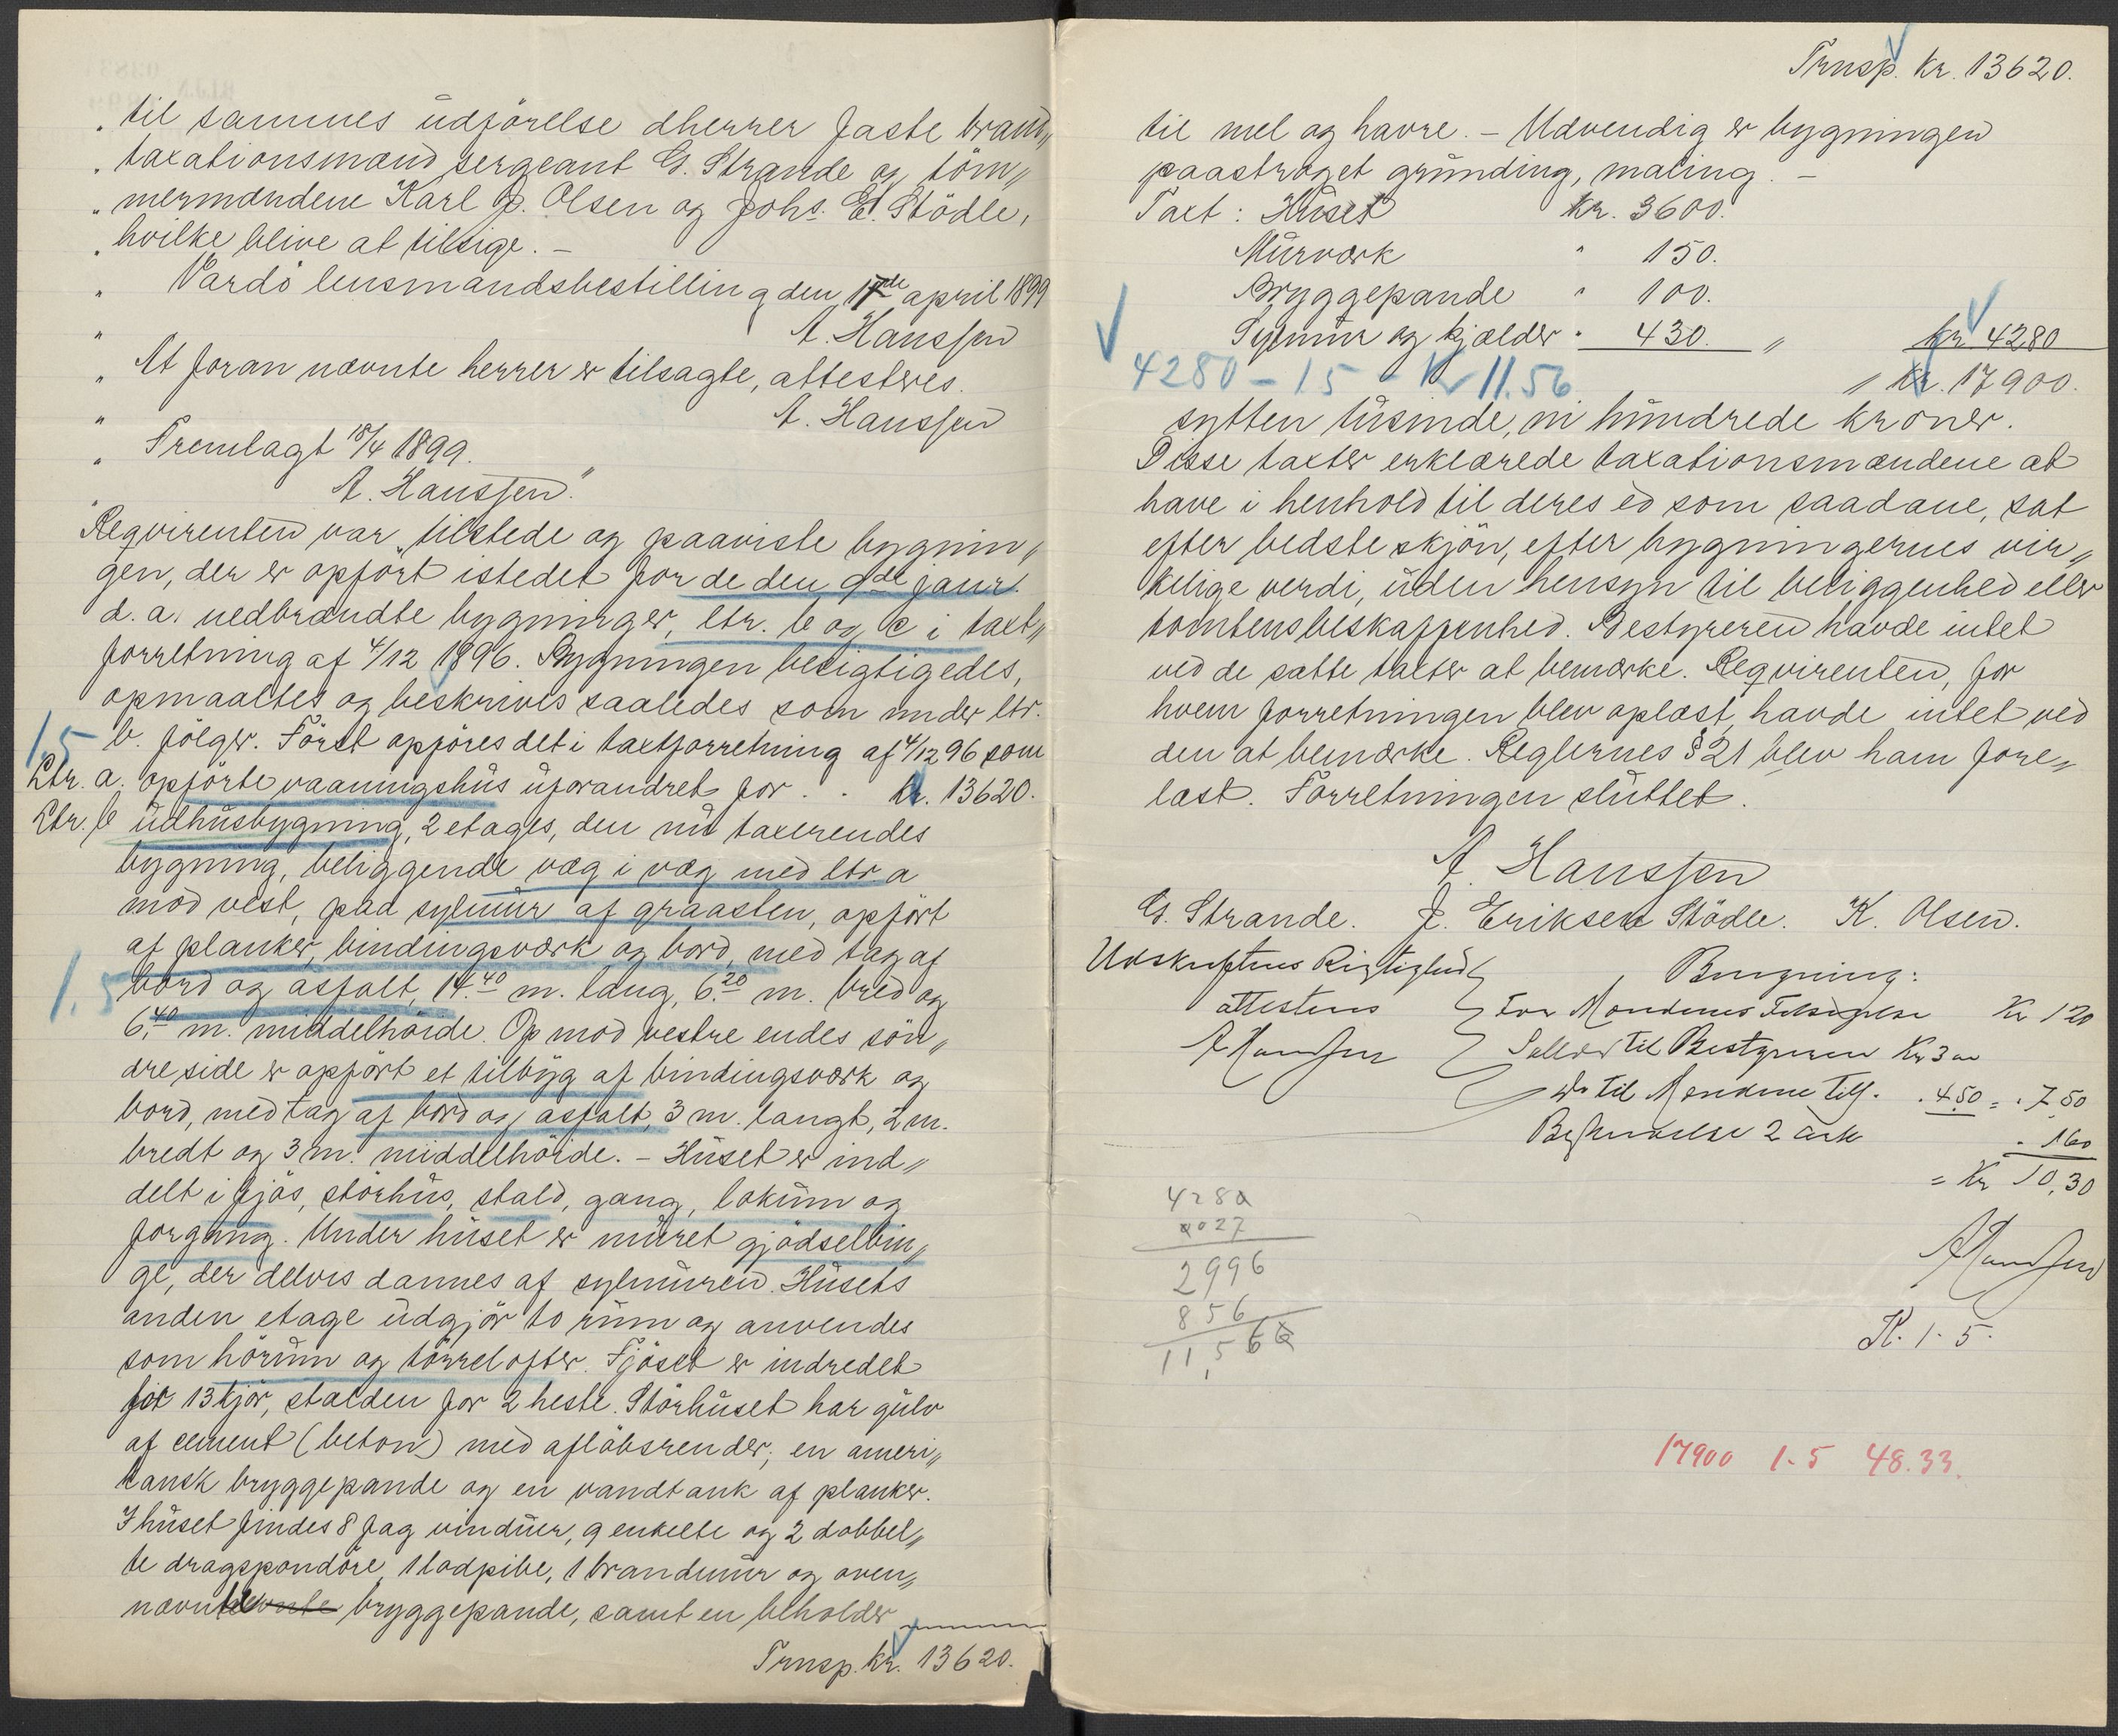 „ til sammes udförelse dherrer faste brand„
„ taxationsmænd sergeant G. Strande og töm„
„ mermændene Karl J. Olsen og Johs. E. Stödle,
„ hvilke blive at tilsige. —
„ Vardö lensmandsbestilling den 17de april 1899
„ A. Hanssen
„ At foran nævnte herrer er tilsagte, attesteres.
„ A. Hanssen
„ Fremlagt 18/4 1899.
„ A. Hanssen."
Reqvirenten var tilstede og paaviste bygnin„
gen, der er opfört istedet for de den 9de janr.
d. a. nedbrændte bygninger, ltr. b og c i taxt„
forretning af 4/12 1896. Bygningen besigtigedes,
opmaaltes og beskrives saaledes som under ltr.
b. fölger. Först opföres det i taxtforretning af 4/12 96 som
1.5
Ltr. a. opförte vaaningshus uforandret for . . kr. 13620.
Ltr. b udhusbygning, 2 etages, den nu taxerendes
bygning, beliggende væg i væg med ltr a
mod vest, paa sylmur af graasten, opfört
af planker, bindingsværk og bord, med tag af
1.5 bord og asfalt, 14.40 m. lang, 6.20 m. bred og
6.40 m. middelhöide. Op mod vestre endes sön„
dre side er opfört et tilbyg af bindingsværk og
bord, med tag af bord og asfalt, 3 m. langt, 2 m.
bredt og 3 m. middelhöide. — Huset er ind„
delt i fjös, störhus, stald, gang, lokum og
forgang. Under huset er muret gjödselbin„
ge, der delvis dannes af sylmuren. Husets
anden etage udgjör to rum og anvendes
som hörum og törrelofter. Fjöset er indredet
for 13 kjör, stalden for 2 heste. Störhuset har gulv
af cement (beton) med aflöbsrender; en ameri„
kansk bryggepande og en vandtank af planker.
I huset findes 8 fag vinduer, 9 enkelte og 2 dobbel„
te dragspondöre, 1 lodpibe, 1 brandmur og oven„
nævnte bryggepande, samt en beholder
Trnsp. kr. 13620.
Trnsp. kr. 13620.
til mel og havre. — Udvendig er bygningen
paaströget grunding, maling. —
Taxt: Huset kr. 3600.
Murværk " 150.
Bryggepande " 100.
Sylmur og kjælder " 430. „ kr 4280
4280 - 1.5 - Kr 11.56 „ kr. 17900.
sytten tusinde, ni hundrede kroner.
Disse taxter erklærede taxationsmændene at
have i henhold til deres ed som saadane, sat
efter bedste skjön, efter bygningernes vir„
kelige verdi, uden hensyn til beliggenhed eller
tomtens beskaffenhed. Bestyreren havde intet
ved de satte taxter at bemærke. Reqvirenten, for
hvem forretningen blev oplæst, havde intet ved
den at bemærke. Reglernes § 21 blev ham fore„
læst. Forretningen sluttet.
A. Hanssen
G. Strande. J. Eriksen Stödle. K. Olsen.
Udskriftens Rigtighed Beregning:
attesteres For Mændenes Tilsigelse Kr 1 20
A Hanssen Sallær til Bestyreren Kr 3 00
Do til Mændene Tils. " 4.50 = " 7.50
Beskrivelse 2 ark " 1 60
= Kr 10.30
A Hanssen
K. 1-5.
4280
0027
2996
856
11,560
17900 1-5 48.33.